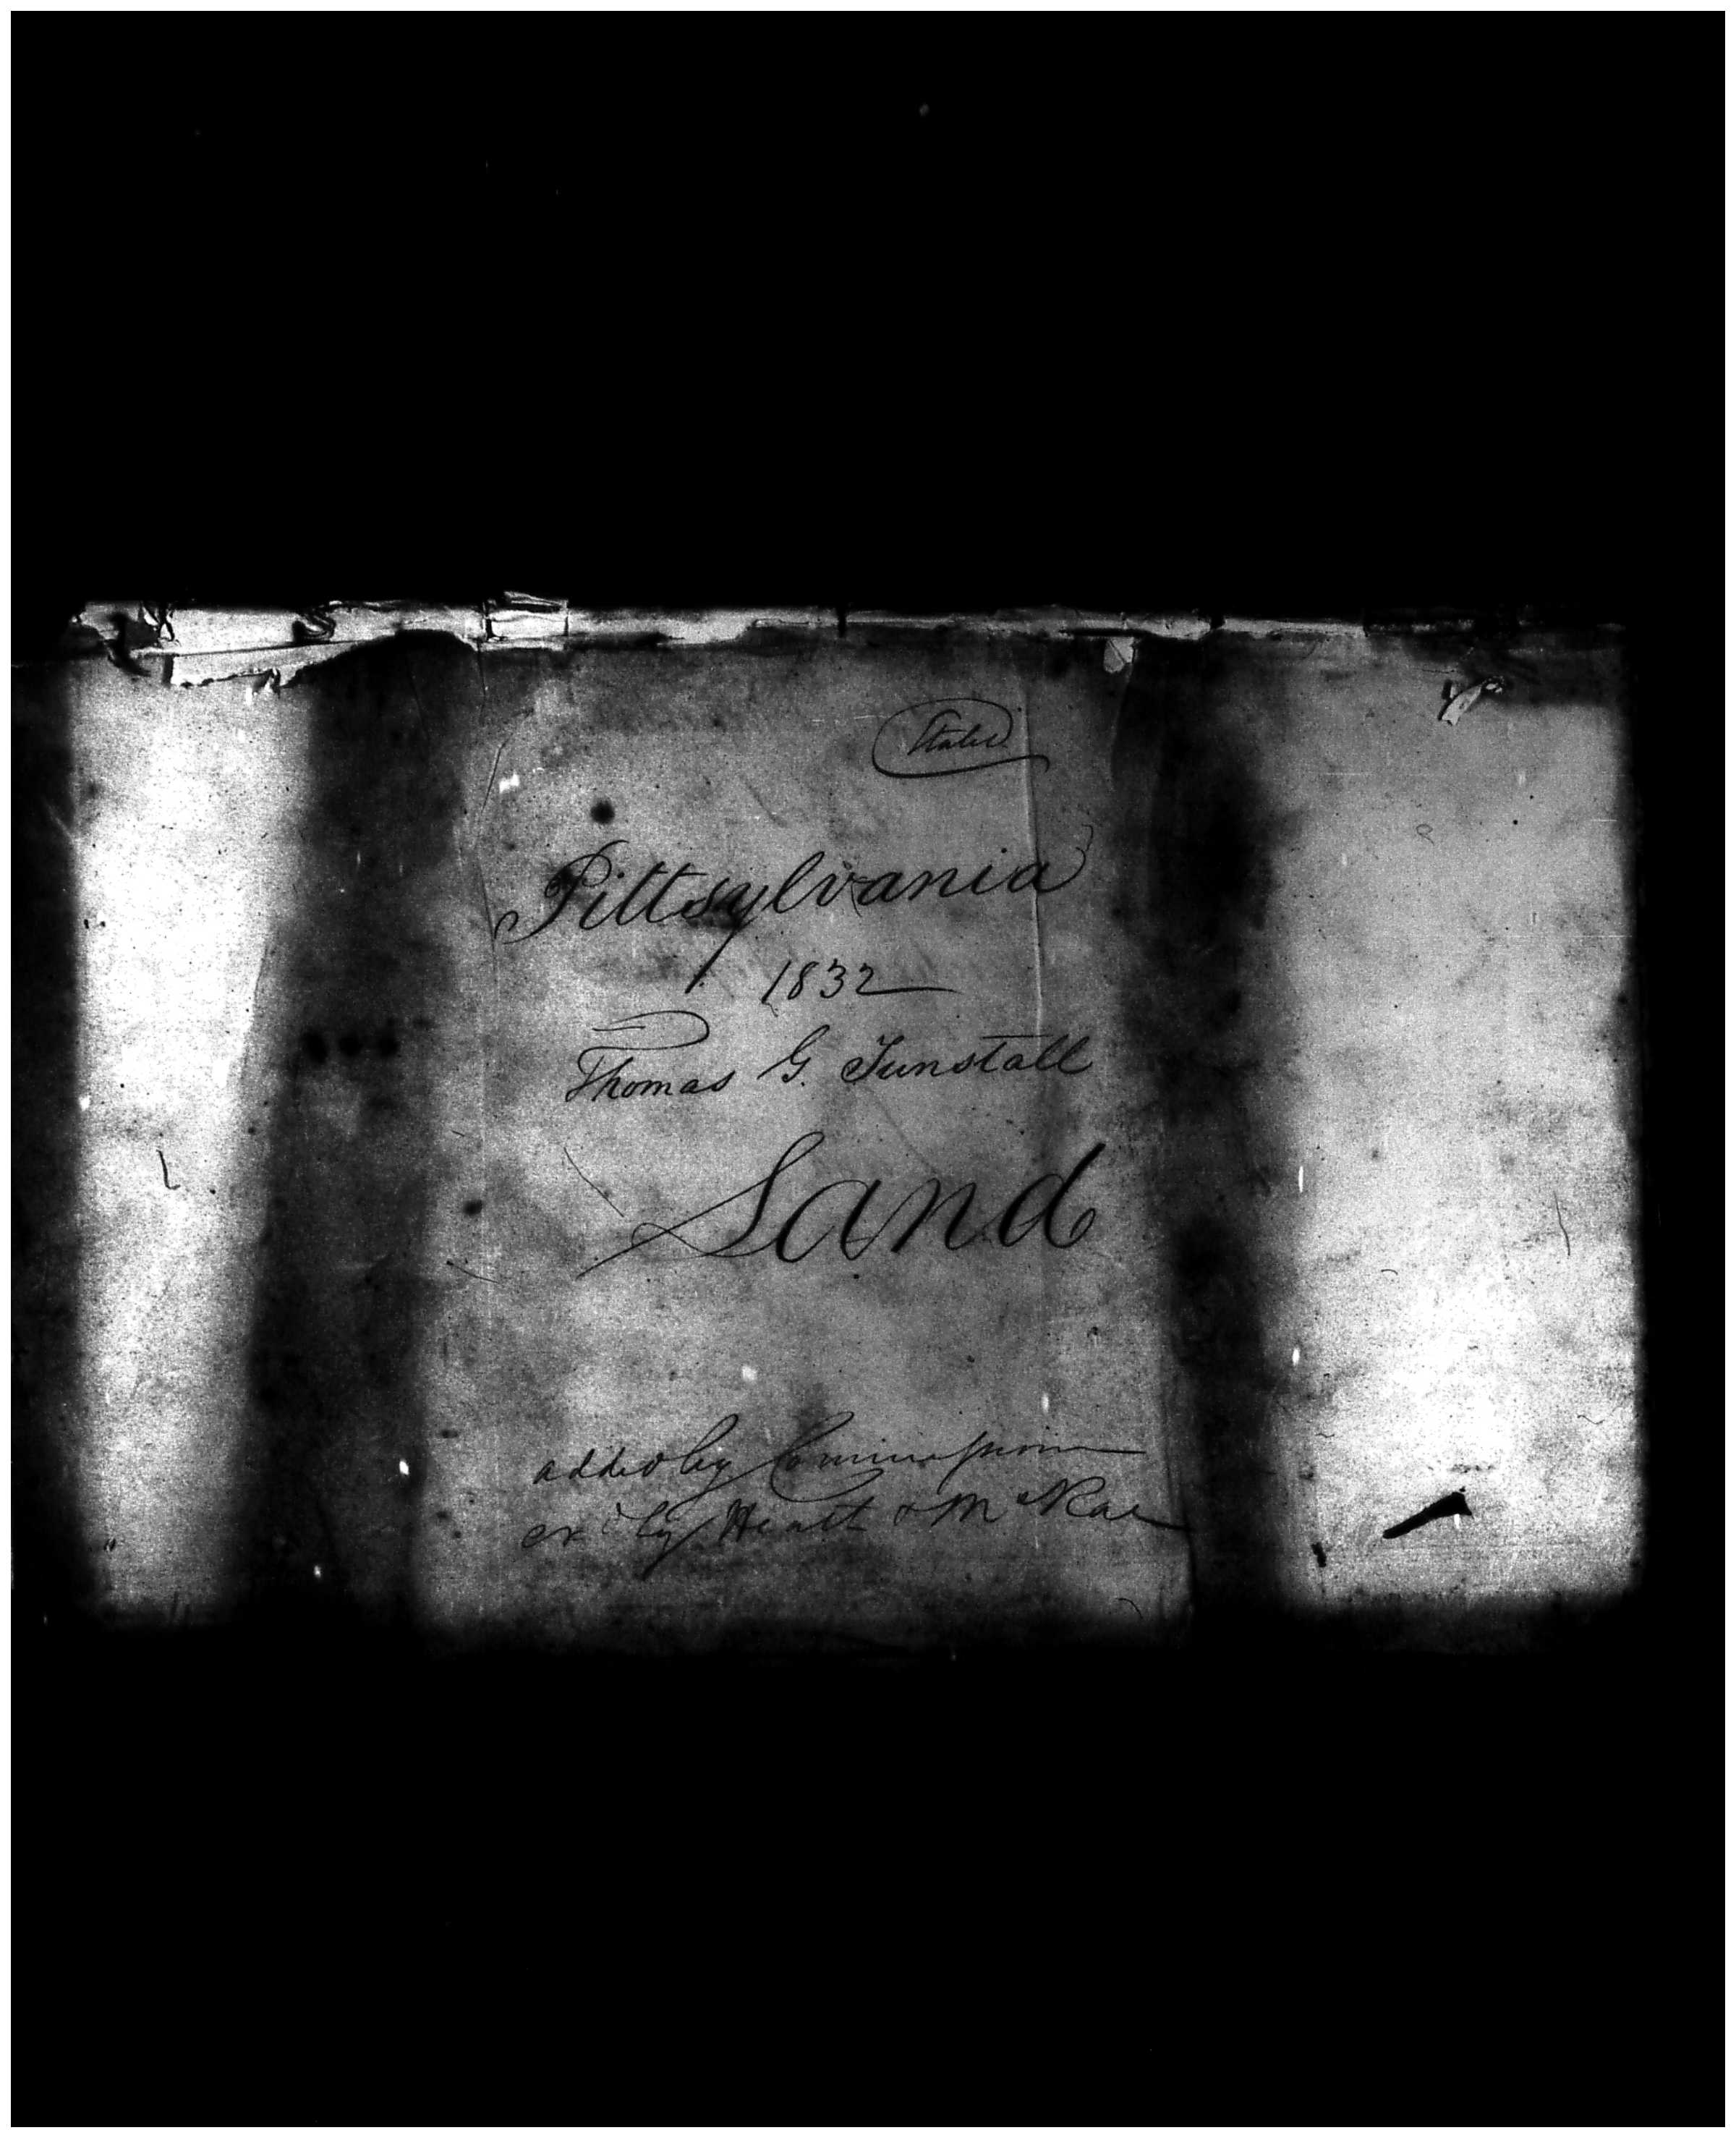 Stated
Pittsylvania
1832
Thomas G. Tunstall
Land
added by Commissioner
exd by Heath & McRae